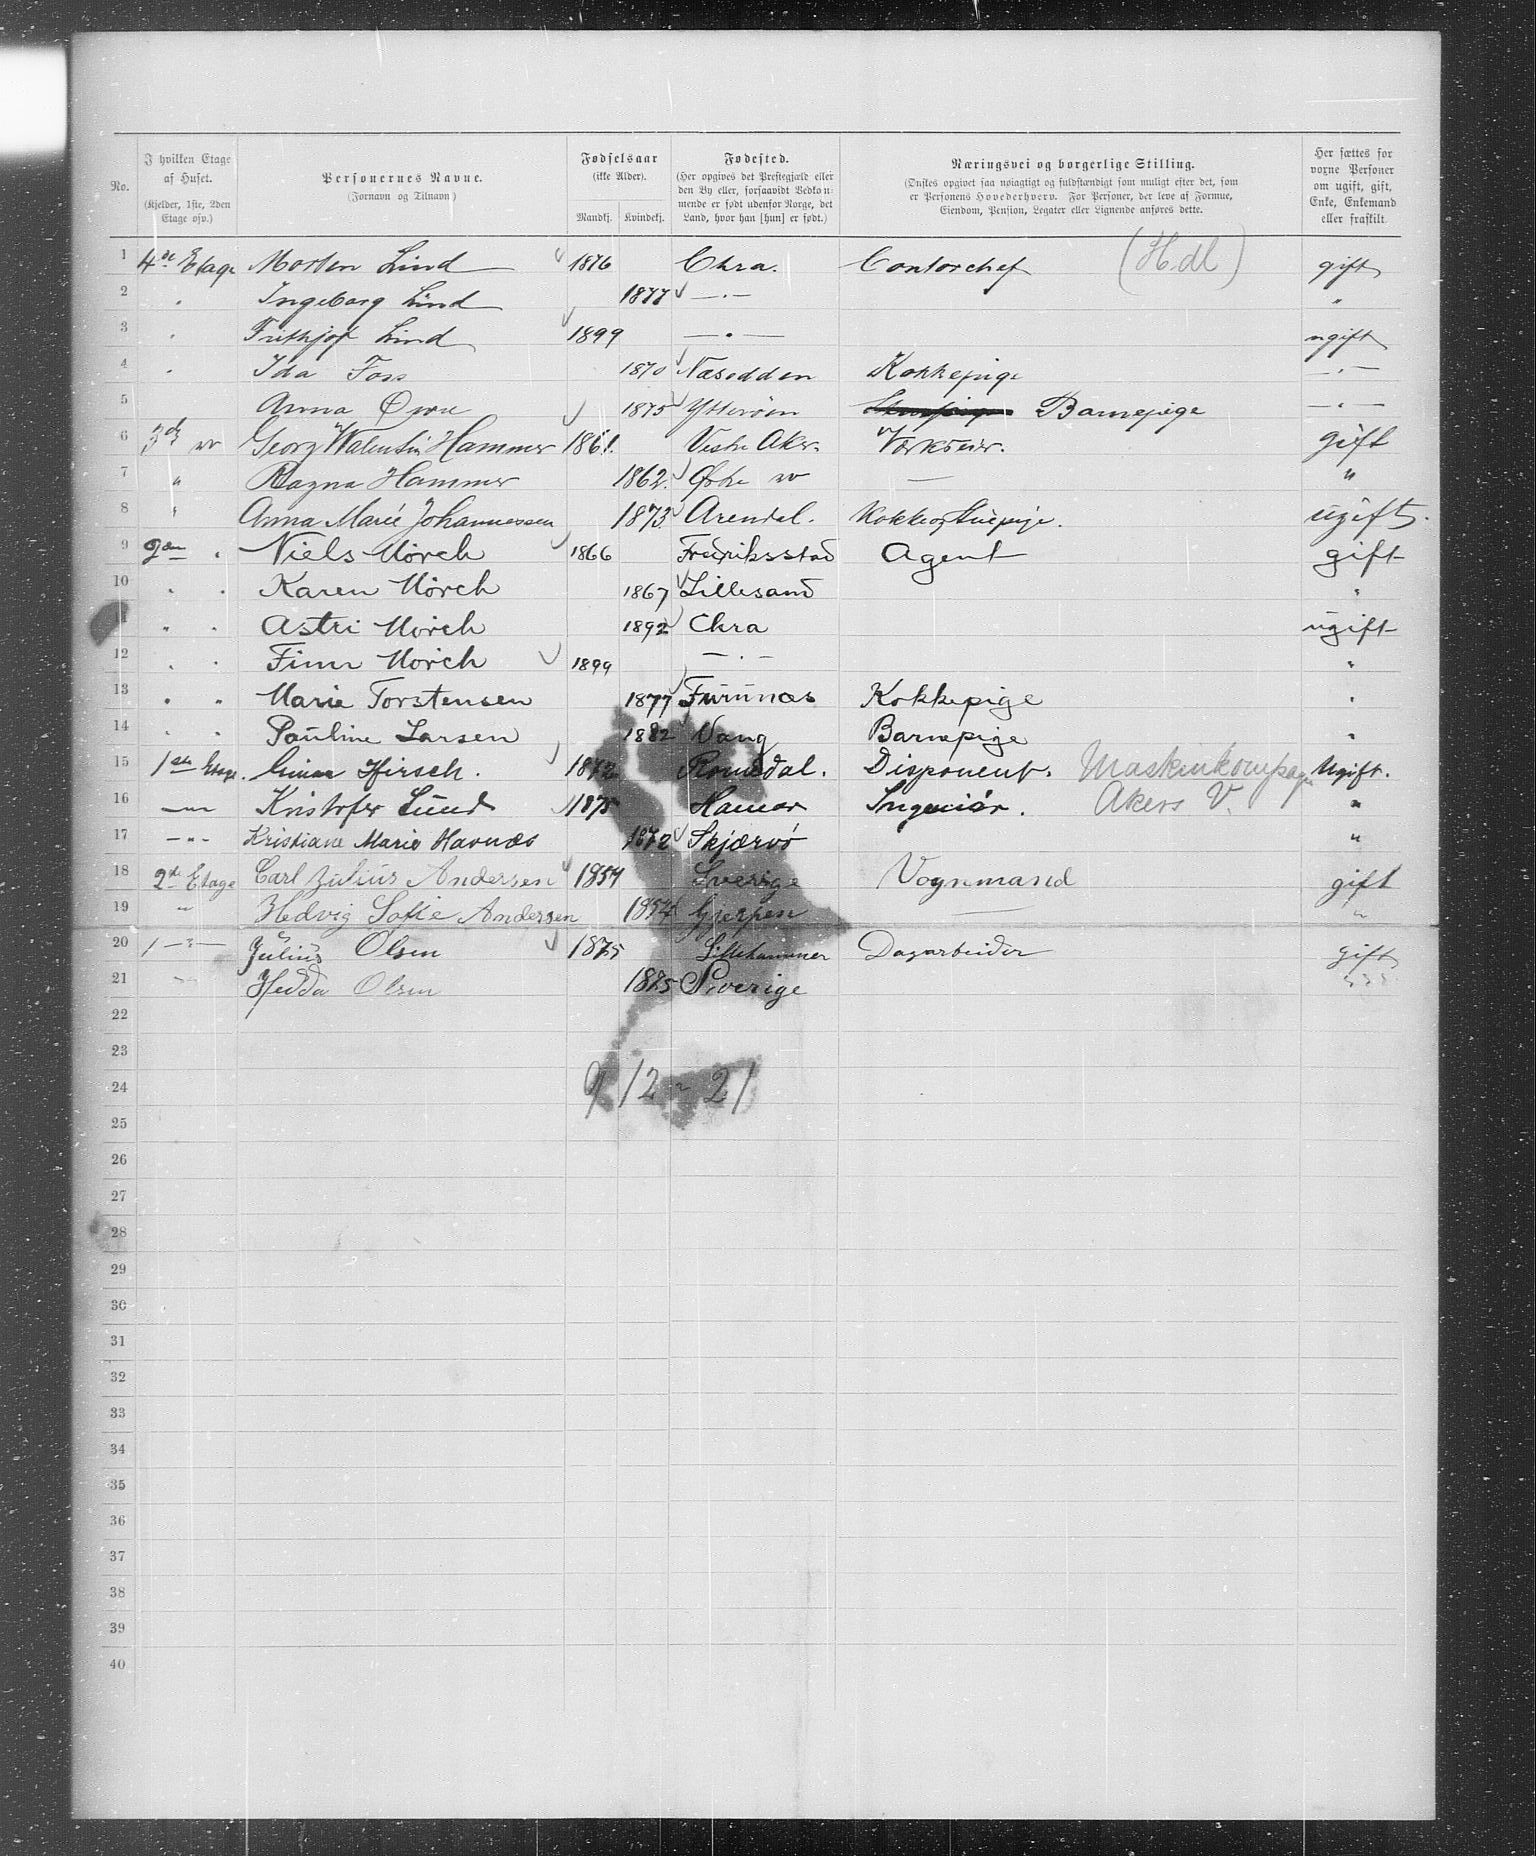 No. I hvilken Etage af Huset. (Kjelder, 1ste, 2den Etage osv.) Personernes Navne. (Fornavn og Tilnavn) Fødselsaar (ikke Alder). Mandkj. Kvindekj. Fødested. (Her opgives det Prestegjæld eller den By eller, forsaavidt Vedkommende er født udenfor Norge, det Land, hvor han [hun] er født.) Næringsvei og borgerlige Stilling. (Ønskes opgivet saa nøiagtigt og fuldstændigt som muligt efter det, som er Personens Hovederhverv. For Personer, der leve af Formue, Eiendom, Pension, Legater eller Lignende anføres dette. Her sættes for voxne Personer om ugift, gift, Enke, Enkemand eller fraskilt.
1 4de Etage Morten Lind 1876 Chra. Contorchef (Hdl) gift
2 " Ingeborg Lind 1877 — " — "
3 " Frithjof Lind 1899 — " — ugift
4 " Ida Foss 1870 Næsodden Kokkepige — " —
5 Anna Øvre 1875 Ytterøen Barnepige — " —
6 3die do Georg Walentin Hammer 1861. Vestre Aker. Værkseier. gift
7 " Ragna Hammer 1862. Østre do — "
8 " Anna Marie Johannessen 1873. Arendal. Kokke og Stuepige. ugift.
9 2den " Niels Mörch 1866 Fredriksstad Agent gift
10 " " Karen Mörch 1867 Lillesand "
11 " " Astri Mörch 1892 Chra ugift
12 " " Finn Mörch 1899 — " — "
13 " " Marie Torstensen 1877 Furunæs Kokkepige "
14 " " Pauline Larsen 1882 Vang Barnepige "
15 1ste Etage. Einar Hirsch. 1872 Romedal. Disponent. Maskinkompagni Ugift.
16 — " — Kristofer Lund 1875 Hamar Ingeniör. Akers V. "
17 — " — Kristiane Marie Havnæs 1872 Skjærvö "
18 2de Etage Carl Julius Andersen 1854 Sverige Vognmand gift
19 " Hedvig Sofie Andersen 1854 Gjerpen — "
20 1 — " — Julius Olsen 1875 Lillehammer Dagarbeider gift
21 — " — Hedda Olsen 1875 Sverige " " "
22
23
24 9 12 - 21
25
26
27
28
29
30
31
32
33
34
35
36
37
38
39
40